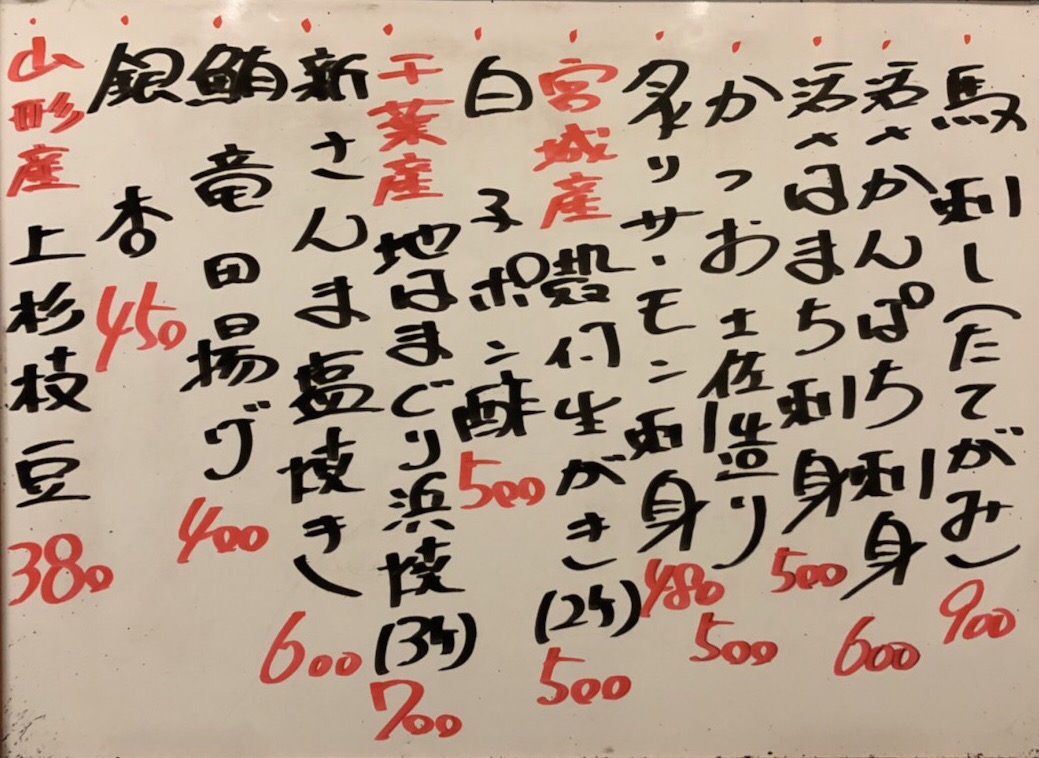 馬刺し(たてがみ) 900
活さかんぱち刺身 600
活さはまち刺身 500
かつお土佐造り 500
炙りサーモン刺身 480
宮城産 殻付生がき(2ケ) 500
白子ポン酢 500
千葉産 地はまぐり浜焼(3ケ) 700
新さんま塩焼き 600
鮪竜田揚げ 400
銀杏 450
山形産 上杉枝豆 380